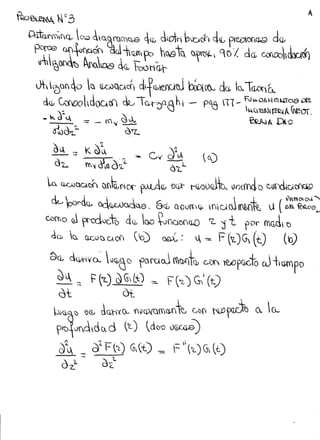 A
PROBLEMA N°3
Determine los diagramas de distribución de presiones de
poros en función del tiempo hasta aprox. 90% de consolidación
utilizando Análisis de Fourier
Utilizando la ecuación diferencial básica de la Teoría
de Consolidación de Terzaghi - pag 177 - FUNDAMENTOS DE
INGENIERIA GEOT.
BRAJA DAS
-k ∂²u / ∂z² = - mv ∂u / ∂t
∂u / ∂t = k ∂²u / mv ∂z² = Cv ∂²u / ∂z² (a)
La ecuación anterior puede ser resuelta, usando condiciones
de borde adecuadas. Se asume inicialmente u (PRESION DE
como el producto de las funciones z y t por medio
de la ecuación (b) así: u = F(z)G(t) (b)
Se deriva luego parcialmente con respecto al tiempo
∂u / ∂t = F(z) ∂G(t) / ∂t = F(z)G'(t)
Luego se deriva nuevamente con respecto a la
profundidad (z) (dos veces)
∂²u / ∂z² = ∂²F(z) G(t) / ∂z² = F''(z)G(t)